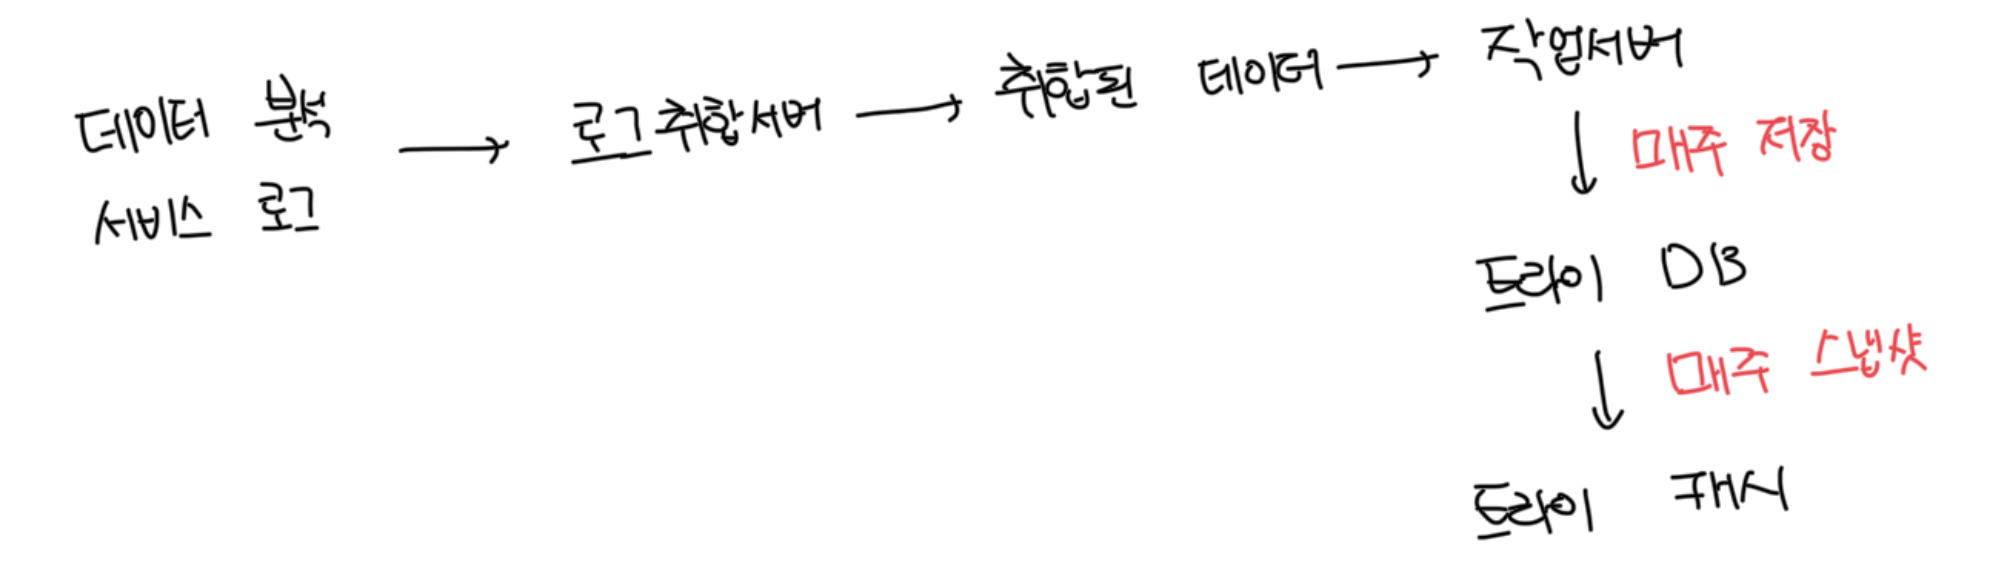 데이터 분석
서비스 로그
로그취합서버
취합된 데이터
작업서버
매주 저장
트라이 DB
매주 스냅샷
트라이 캐시